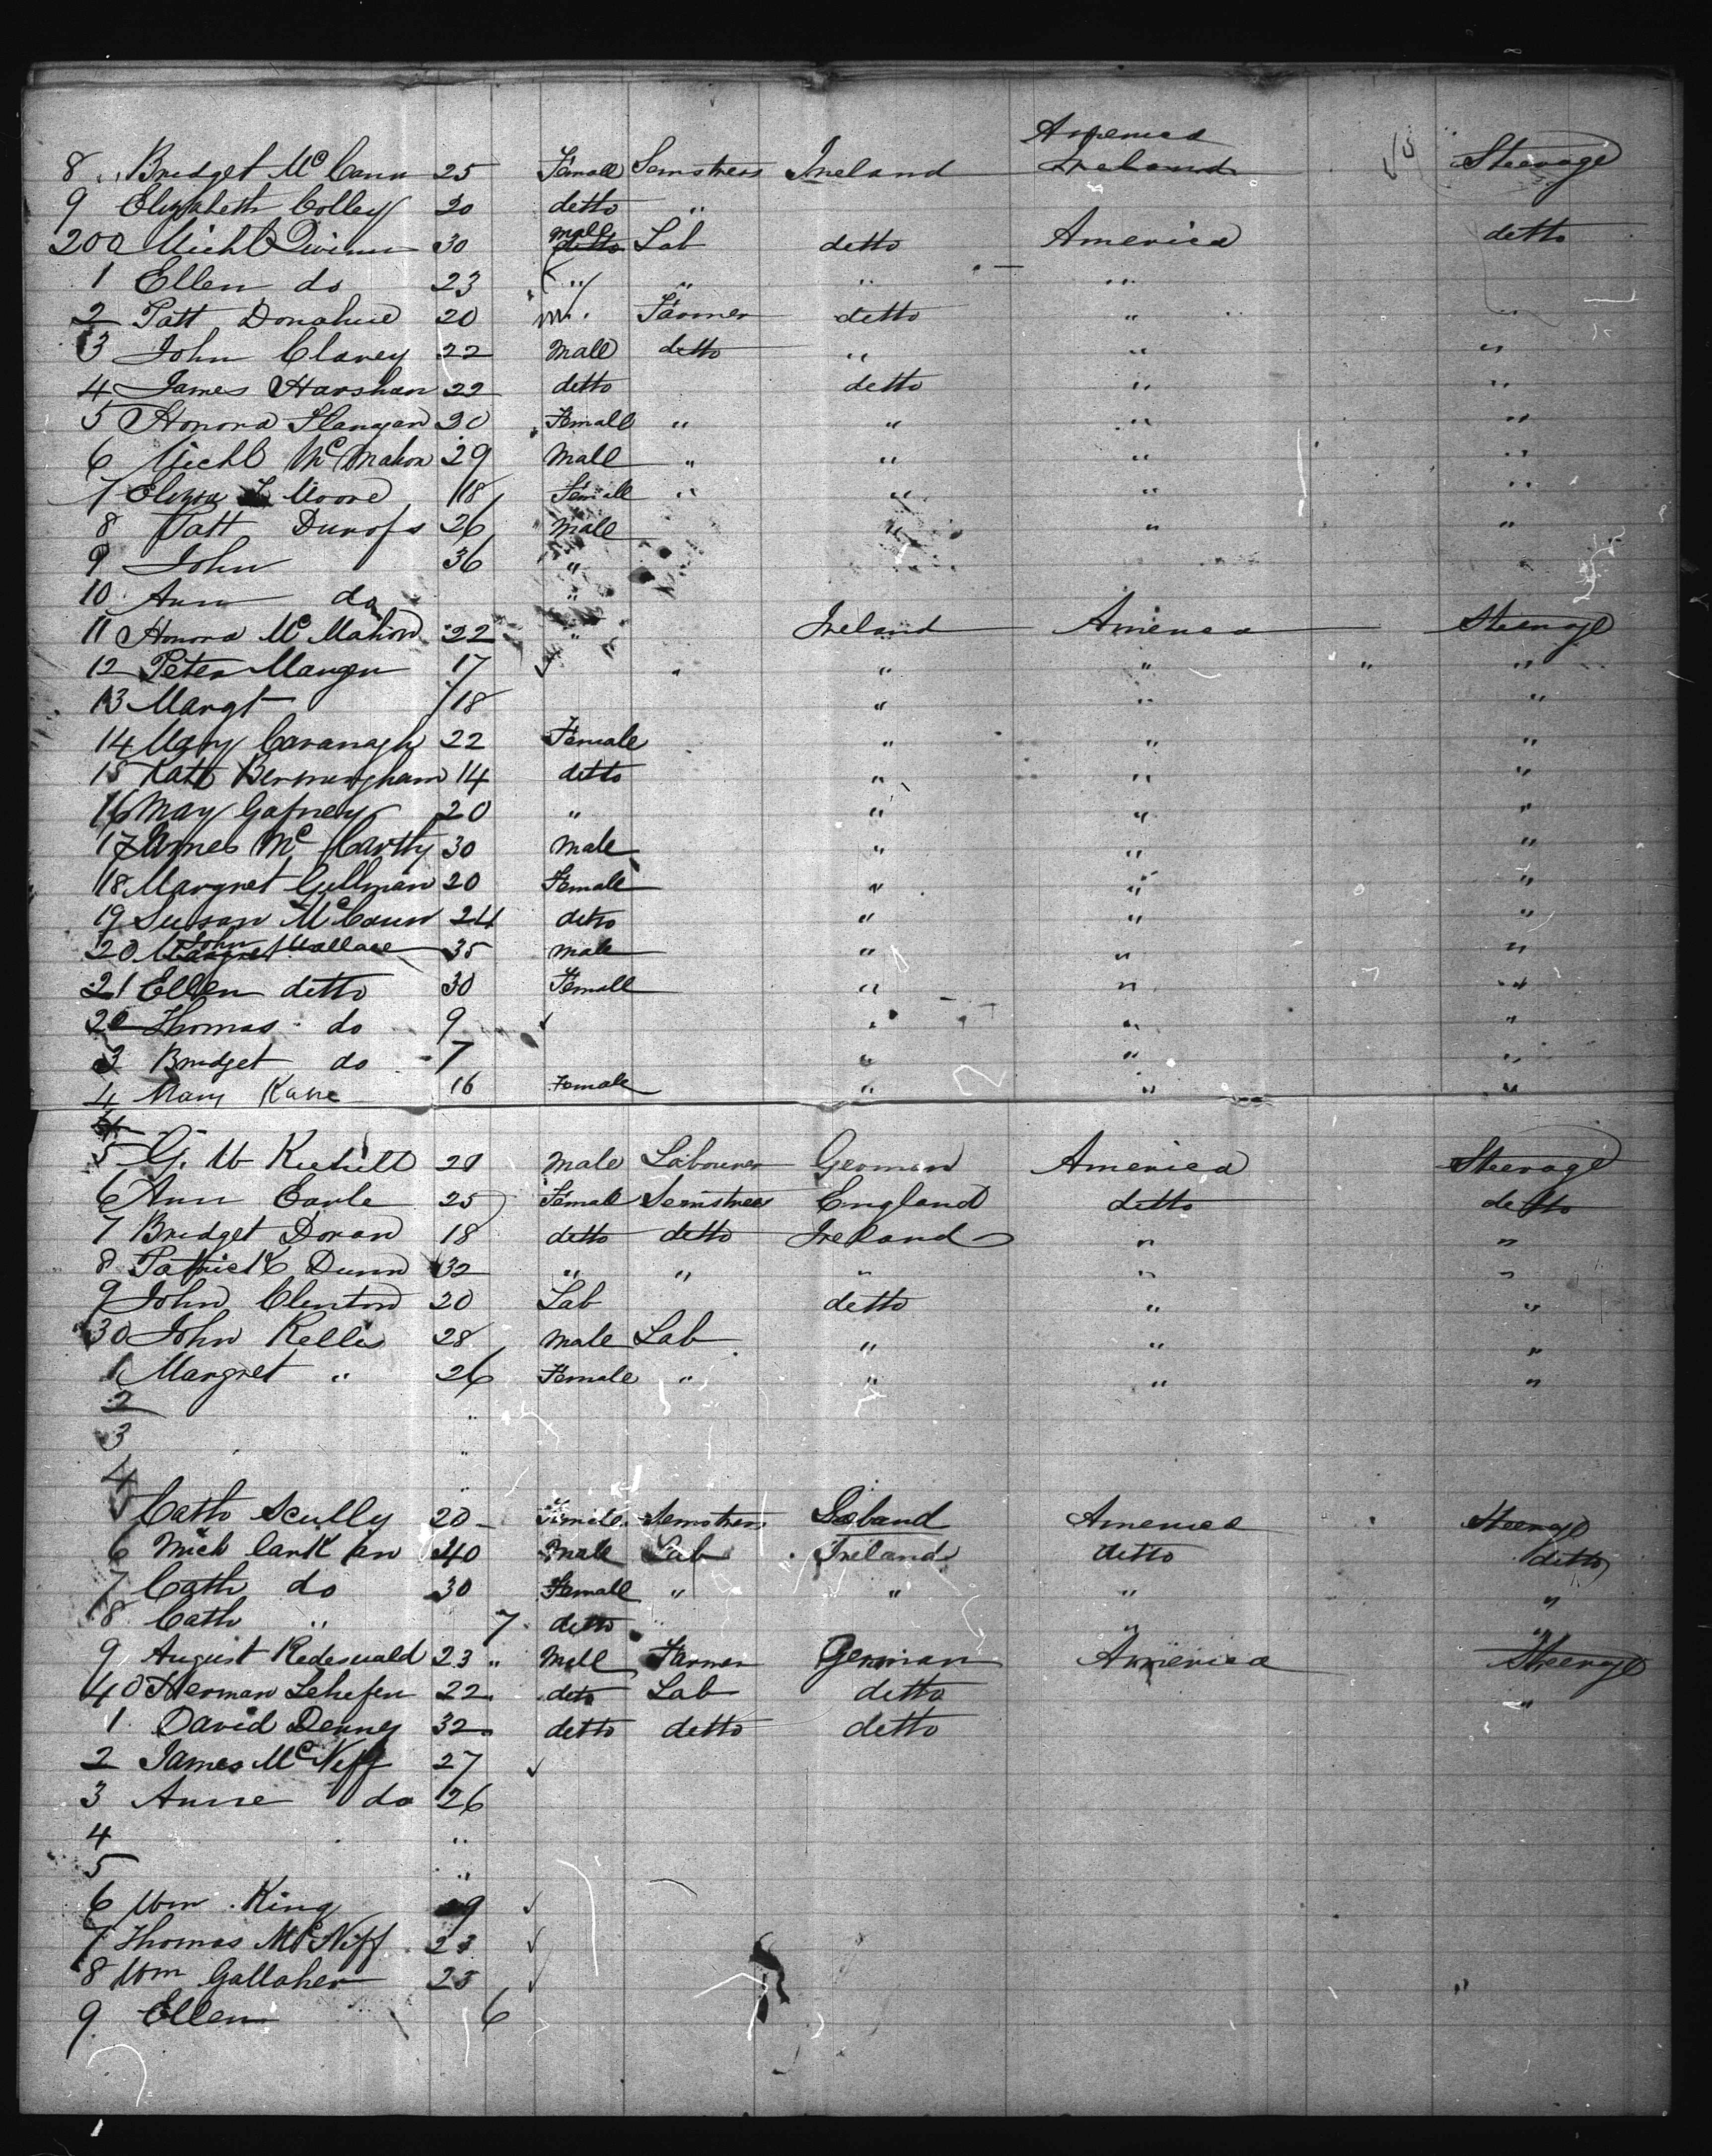 America
8 Bridget McCann 25 Female Semstress Ireland Ireland Steerage
9 Elizabeth Colley 20 ditto "
male
200 Michl 30 ditto Lab ditto America ditto
1 Ellen do 23 " " " "
2 Patt Donahue 20 m. Farmer ditto " "
3 John Clarey 22 Male ditto " " "
4 James Harshan 22 ditto ditto " "
5 Honora Flangan 20 Female " " " "
6 Michl McMahon 29 Male " " " "
7 Eliza Moore 18 Female " " " "
8 Patt 26 Male " " "
9 John 36 "
10 Ann do "
11 Honora McMahon 22 " Ireland America Steerage
12 Peter Mangn 17 " " " "
13 Margt 18 " " "
14 Mary Cavanagh 22 Female " " "
15 Kate Bermingham 14 ditto " " "
16 May Gafney 20 " " " "
17 James McCarthy 30 male " " "
18 Margret Gillman 20 Female " " "
19 Susan McCann 24 ditto " " "
John
20 Margret Wallace 35 male " " "
21 Ellen ditto 30 Female " " "
22 Thomas do 9 " " "
3 Bridget do 7 " " "
4 Mary Kane 16 Female " " "
5 G. W 29 male Labourer German America Steerage
6 Ann Earle 25 Female Semstress England ditto ditto
7 Bridget Doran 18 ditto ditto Ireland " "
8 Patrick Dunn 32 " " " " "
9 John Clenton 20 Lab ditto " "
30 John Kellis 28 male Lab " " "
1 Margret " 26 Female " " " "
2 "
3 "
4 "
5 Cath Scully 20 Female Semstress America Steerage
6 Mich Cark an 40 Male Lab Ireland ditto ditto
7 Cath do 30 Female " " " "
8 Cath " 7 ditto " "
9 August Redeswald 23 " Male Farmer German America Steerage
40 Herman Lehefen 22 ditto Lab ditto "
1 David Denney 32 ditto ditto ditto
2 James McNeff 27
3 Anne do 26
4 "
5 "
6 Wm King
7 Thomas McNiff 23
8 Wm Gallaher 25 "
9 Ellen 6